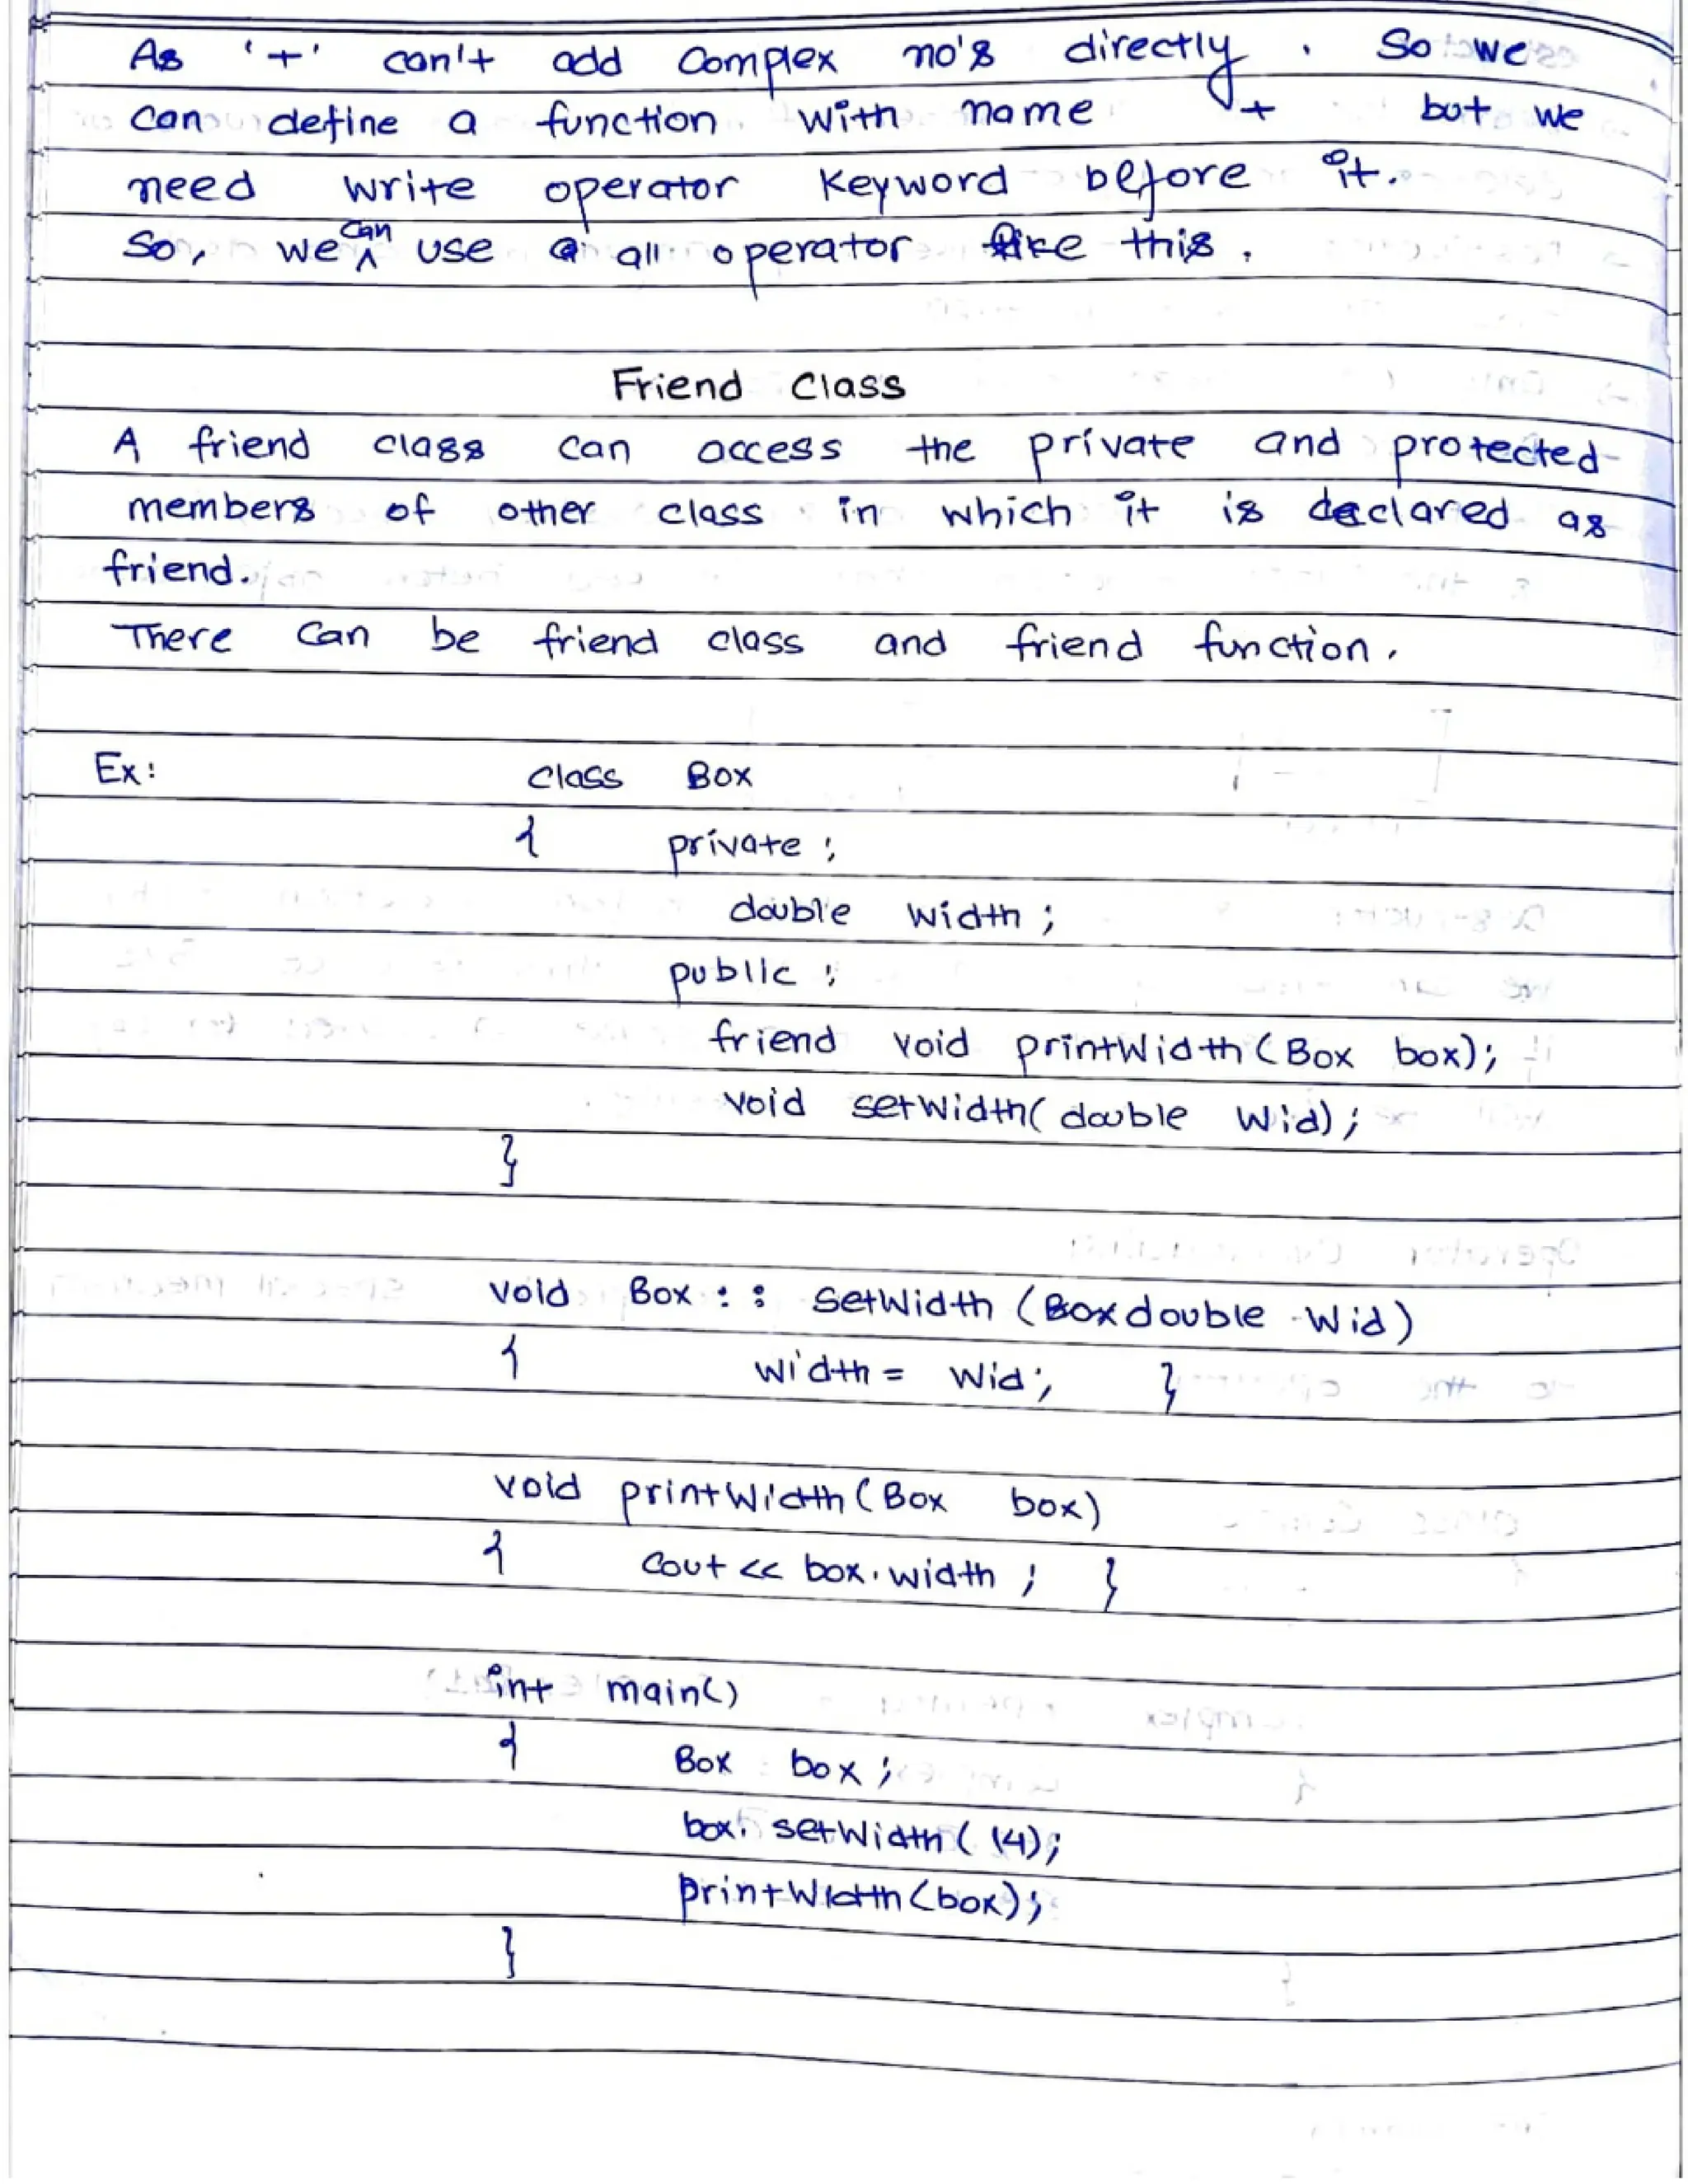 As '+' can't add Complex no's directly. So we
can define a function with name + but we
need write operator keyword before it.
So, we can use all operator like this.
Friend Class
A friend class can access the private and protected
members of other class in which it is declared as
friend.
There can be friend class and friend function.
Ex: class Box
{ private :
double width ;
public :
friend void printWidth ( Box box);
void setWidth( double Wid) ;
}
void Box : : setWidth ( Box double Wid )
{ width = Wid ; }
void printWidth ( Box box)
{ cout << box.width ; }
int main()
{ Box box ;
box. setWidth ( 14);
printWidth (box);
}